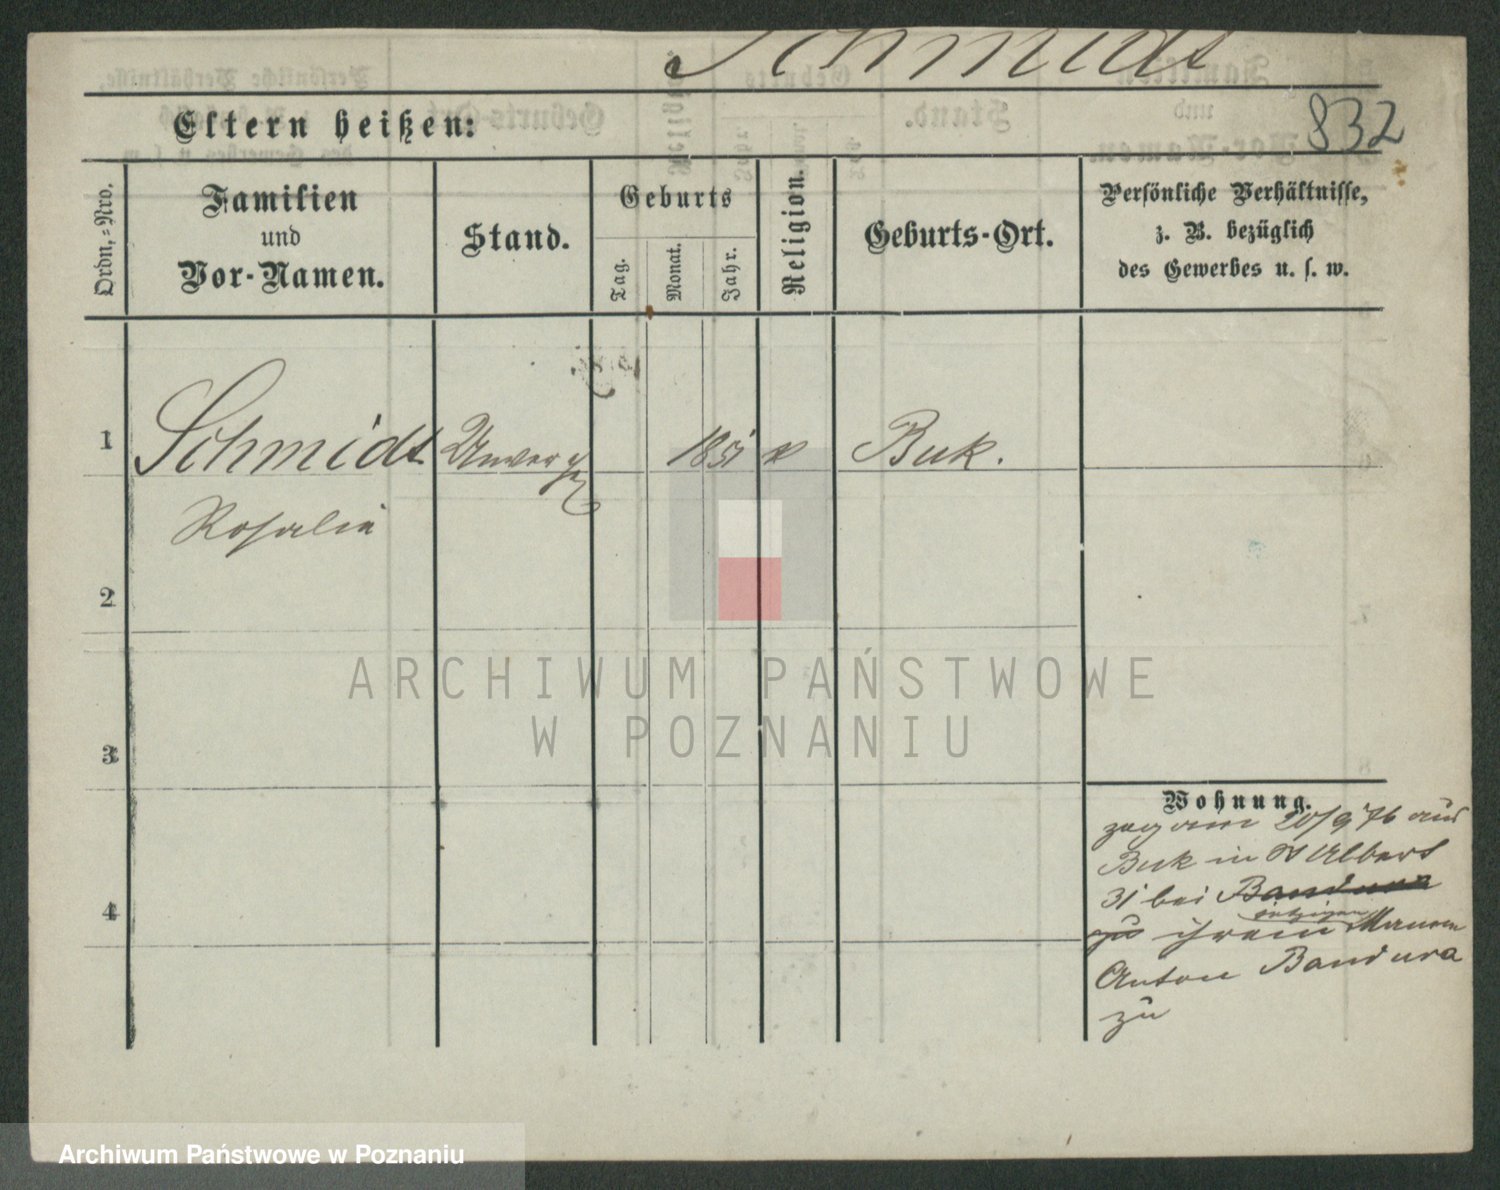 Schmidt
832
Eltern heißen:
Ordn.=Nro.
Familien
und
Vor-Namen.
Stand.
Geburts
Tag.
Monat.
Jahr.
Religion.
Geburts-Ort.
Persönliche Verhältnisse,
z. B. bezüglich
des Gewerbes u. s. w.
1 Schmidt Unverg 1851 k Buk.
Rosalie
2
3
4
Wohnung.
zog am 20/9 76 aus
Buk in St Albert
31 bei Bandura
zu ihrem jetzigen Manne
Anton Bandura
zu
ARCHIWUM PAŃSTWOWE
W POZNANIU
Archiwum Państwowe w Poznaniu